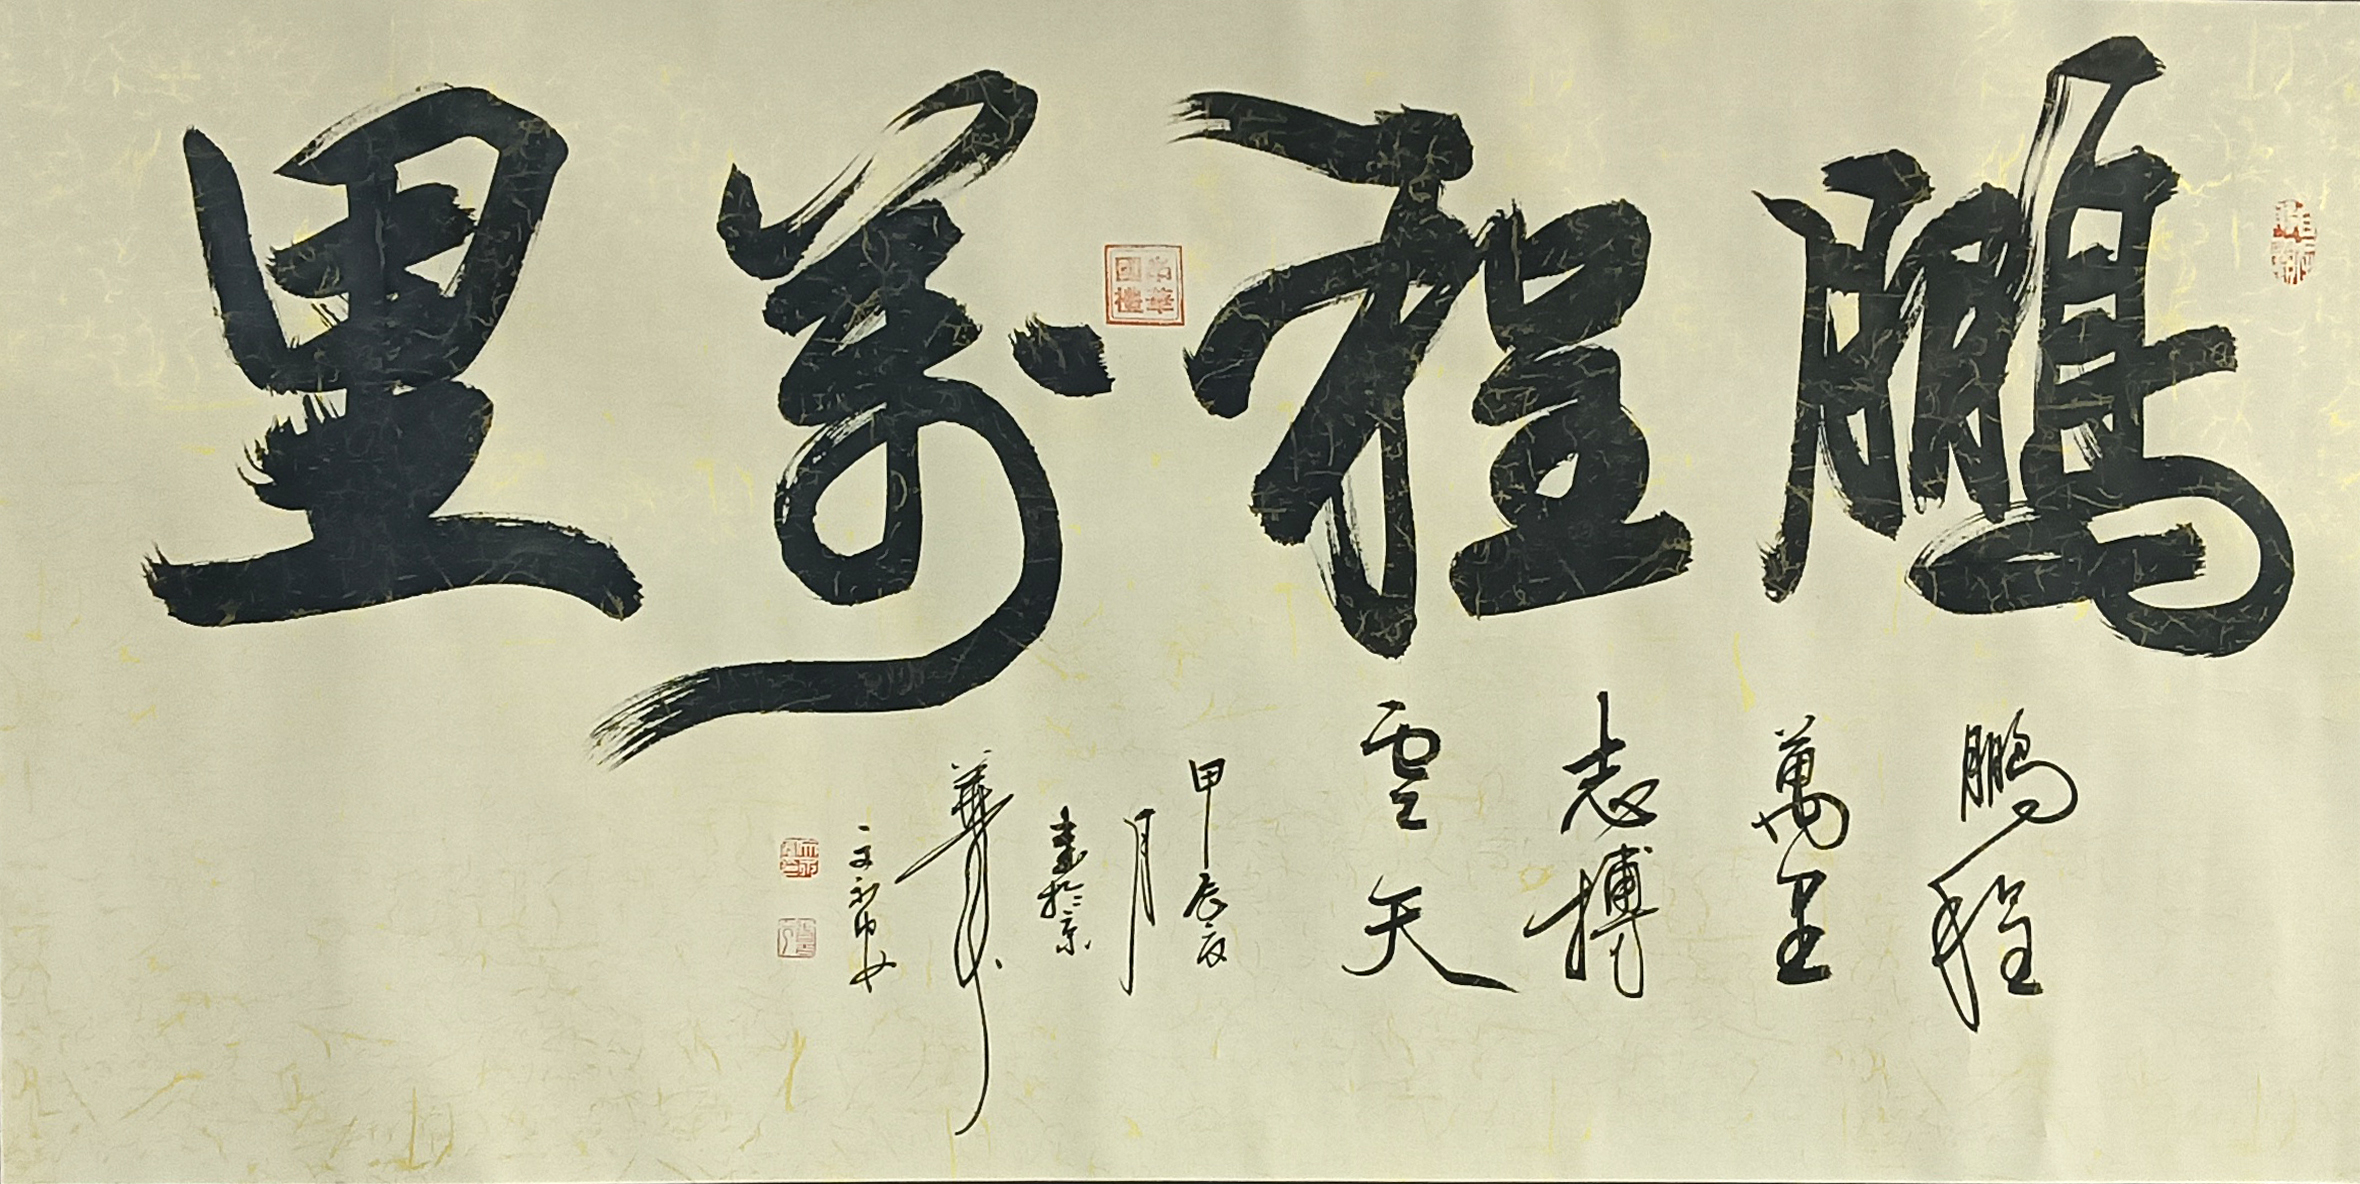 鵬程萬里
鵬程
萬里
志搏
雲天
甲辰
月
書於京
中華國禮